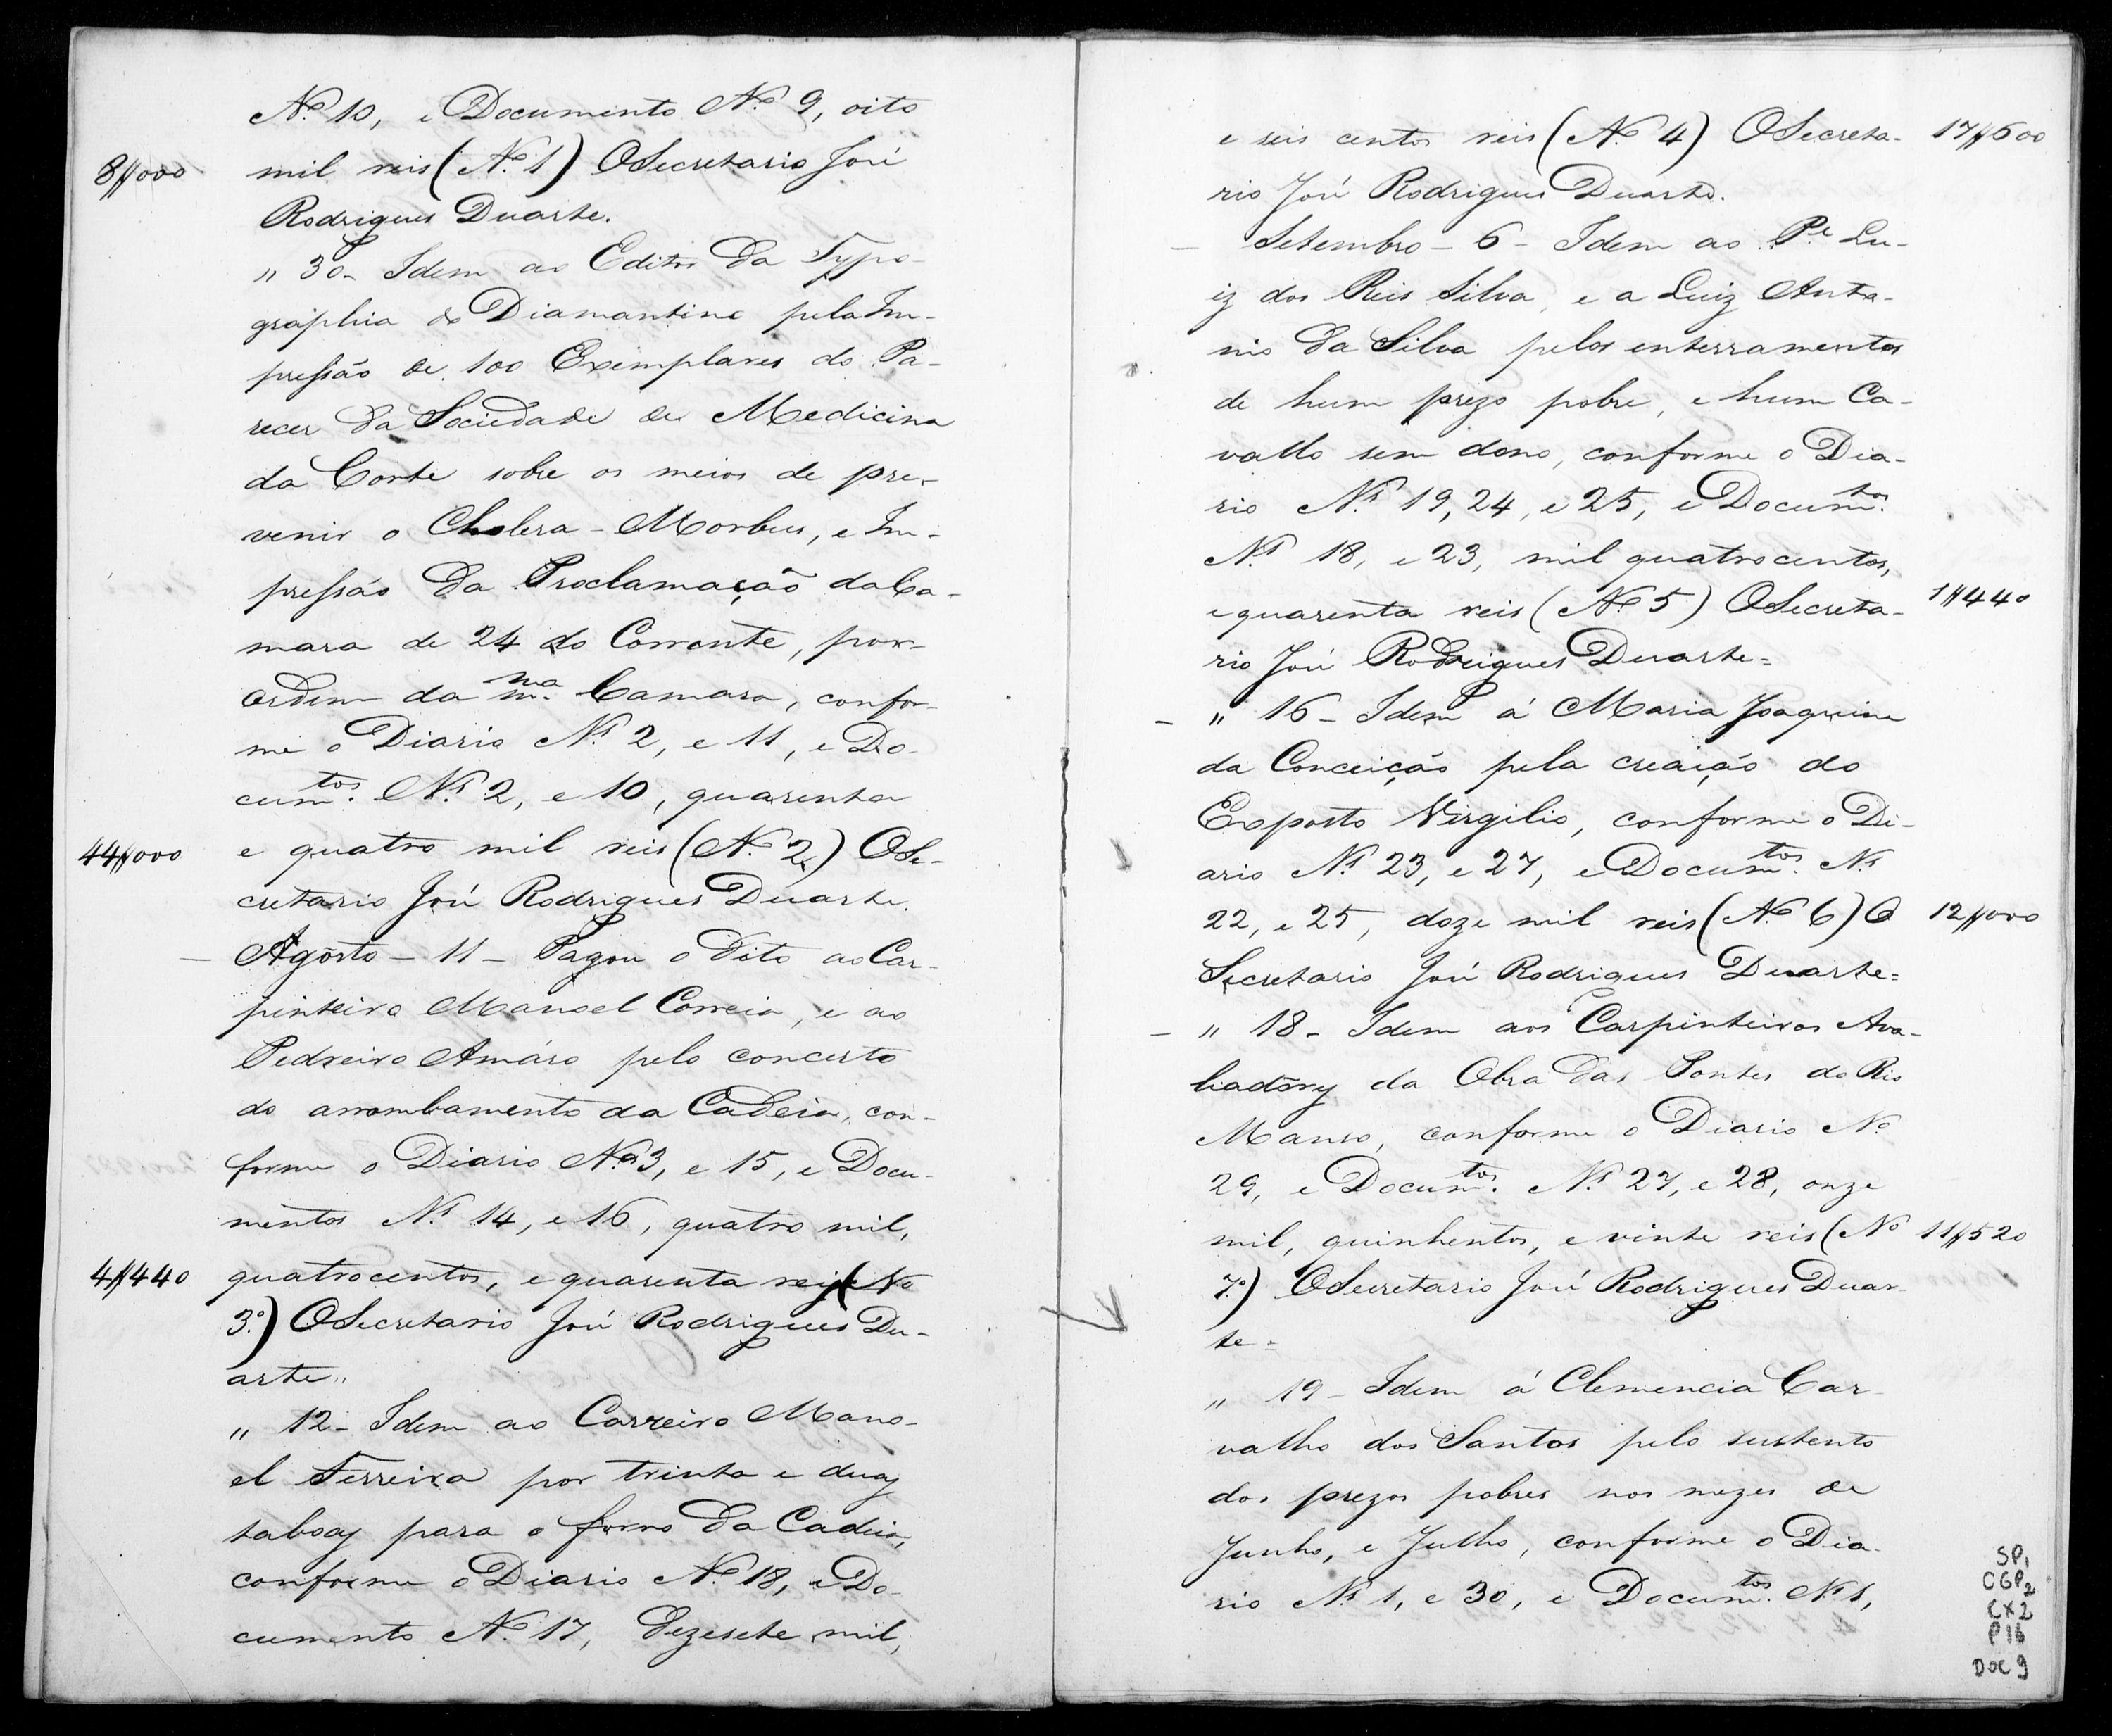 Nº 10, e Documento Nº 9, oito
8$000 mil reis (Nº 1) O Secretario José
Rodrigues Duarte.
" 30 - Idem ao Editor da Typo-
graphia do Diamantino pela Im-
pressão de 100 Exemplares do Pa-
recer da Sociedade de Medicina
da Corte sobre os meios de pre-
venir o Cholera-Morbus, e Im-
pressão da Proclamação da Ca-
mara de 24 do Corrente, por
ordem da mma. Camara, confor-
me o Diario Ns. 2, e 11, e Do-
cumtos. Ns. 2, e 10, quarenta
44$000 e quatro mil reis (Nº 2) O Se-
cretario José Rodrigues Duarte.
- Agôsto - 11 - Pagou o Dito ao Car-
pinteiro Manoel Correia, e ao
Pedreiro Amáro pelo concerto
do arrombamento da Cadeia, con-
forme o Diario Nos 3, e 15, e Docu-
mentos Ns. 14, e 16, quatro mil,
4$440 quatrocentos, e quarenta reis (No
3º) O Secretario José Rodrigues Du-
arte "
" 12 - Idem ao Carreiro Mano-
el Ferreira por trinta e duas
taboas para o forro da Cadeia,
conforme o Diario Nº 18, e Do-
cumento Nº 17, dezesete mil,
e seis centos reis (Nº 4) O Secreta- 17$600
rio José Rodrigues Duarte.
- Setembro - 6 - Idem ao Pe. Lu-
iz dos Reis Silva, e a Luiz Anto-
nio da Silva pelos enterramentos
de hum prezo pobre, e hum Ca-
vallo sem dono, conforme o Dia-
rio Ns. 19, 24, e 25, e Documtos.
Ns. 18, e 23, mil quatrocentos,
e quarenta reis (Nº 5) O Secreta- 1$440
rio José Rodrigues Duarte =
- " 16 - Idem á Maria Joaquina
da Conceição pela creaição do
Exposto Virgilio, conforme o Di-
ario Ns. 23, e 27, e Documtos. Ns.
22, e 25, doze mil reis (Nº 6) O 12$000
Secretario José Rodrigues Duarte =
- " 18 - Idem aos Carpinteiros Ava-
liadôres da Obra das Pontes do Rio
Manso, conforme o Diario Nº
29, e Documtos. Ns. 27, e 28, onze
mil, quinhentos, e vinte reis (Nº 11$520
7º) O Secretario José Rodrigues Duar-
te =
" 19 - Idem á Clemencia Car-
valho dos Santos pelo sustento
dos prezos pobres nos mezes de
Junho, e Julho, conforme o Dia-
rio Ns. 1, e 30, e Documtos. Ns. 1,
SP1
CGP2
CX2
P16
DOC 9